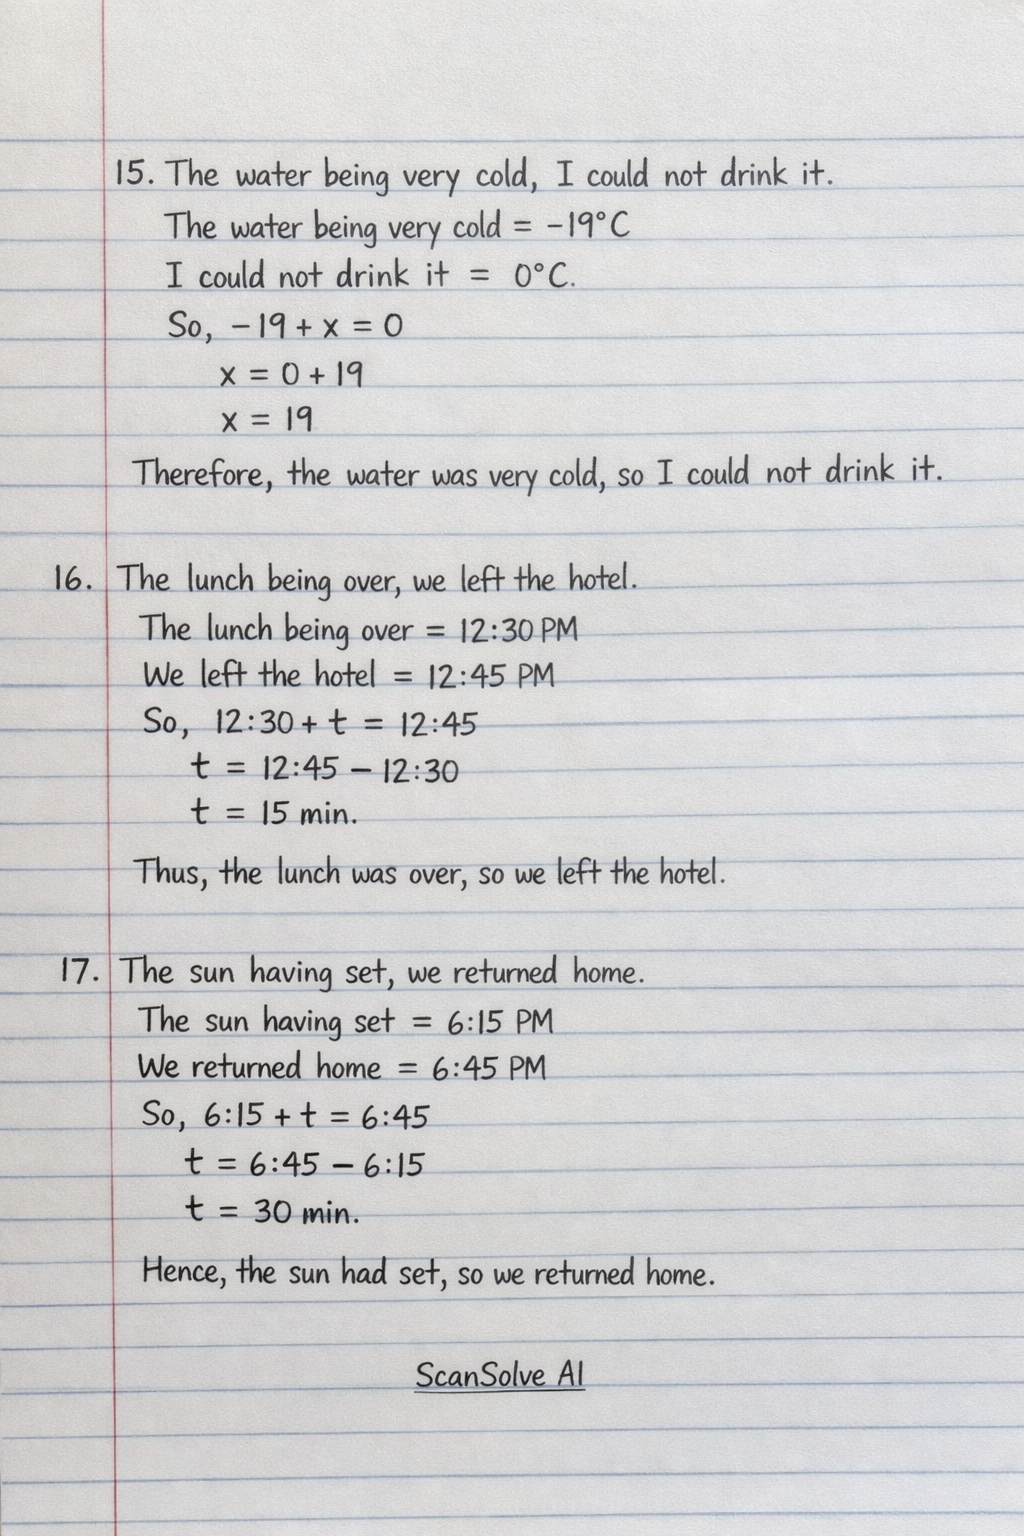 15. The water being very cold, I could not drink it.
The water being very cold = -19°C
I could not drink it = 0°C.
So, -19 + x = 0
x = 0 + 19
x = 19
Therefore, the water was very cold, so I could not drink it.
16. The lunch being over, we left the hotel.
The lunch being over = 12:30 PM
We left the hotel = 12:45 PM
So, 12:30 + t = 12:45
t = 12:45 - 12:30
t = 15 min.
Thus, the lunch was over, so we left the hotel.
17. The sun having set, we returned home.
The sun having set = 6:15 PM
We returned home = 6:45 PM
So, 6:15 + t = 6:45
t = 6:45 - 6:15
t = 30 min.
Hence, the sun had set, so we returned home.
ScanSolve AI